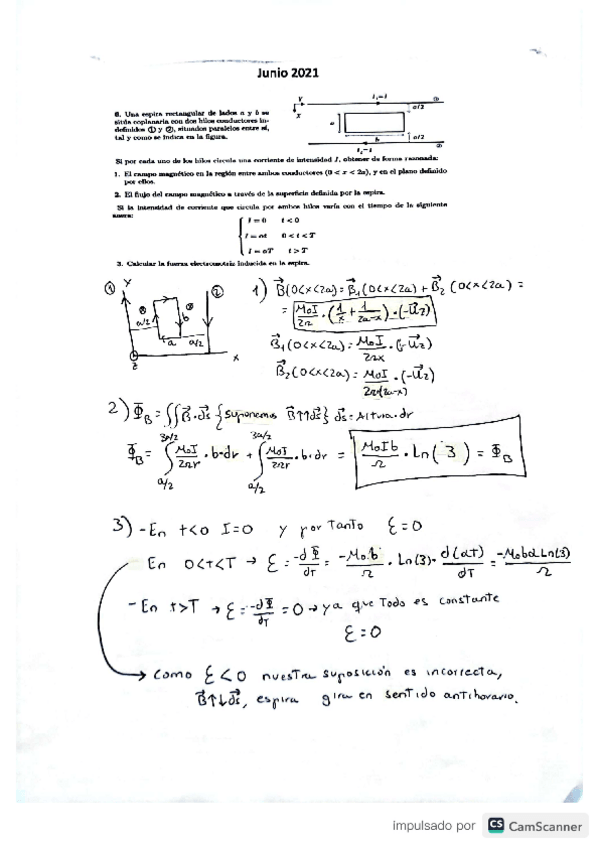 Junio 2021
6. Una espira rectangular de lados a y b se
sitúa coplanaria con dos hilos conductores in-
definidos ① y ②, situados paralelos entre sí,
tal y como se indica en la figura.
Y
X
①
a/2
a
b
a/2
②
Si por cada uno de los hilos circula una corriente de intensidad I, obtener de forma razonada:
1. El campo magnético en la región entre ambos conductores (0 < x < 2a), y en el plano definido
por ellos.
2. El flujo del campo magnético a través de la superficie definida por la espira.
Si la intensidad de corriente que circula por ambos hilos varía con el tiempo de la siguiente
I = 0 t < 0
I = αt 0 < t < T
I = αT t > T
3. Calcular la fuerza electromotriz inducida en la espira.
① Y ②
a/2 b
a a/2
z x
1) B⃗(0<x<2a)= B⃗₁(0<x<2a) + B⃗₂(0<x<2a) =
= μ₀I/2π · (1/x + 1/2a-x) · (-u⃗z)
B⃗₁(0<x<2a)= μ₀I/2πx · (-u⃗z)
B⃗₂(0<x<2a)= μ₀I/2π(2a-x) · (-u⃗z)
2) Φ_B = ∬B⃗·ds⃗ {suponemos B⃗↑↑ds⃗} ds⃗ = Altura·dr
Φ_B = ∫_{a/2}^{3a/2} μ₀I/2πr · b·dr + ∫_{a/2}^{3a/2} μ₀I/2πr · b·dr = μ₀Ib/π · Ln(3) = Φ_B
3) - En t<0 I=0 y por tanto ε=0
En 0<t<T → ε = -dΦ/dT = -μ₀b/π · Ln(3) · d(αT)/dT = -μ₀bαLn(3)/π
- En t>T → ε = -dΦ/dT = 0 → ya que Todo es constante
ε=0
→ Como ε<0 nuestra suposición es incorrecta,
B⃗↑↓ds⃗, espira gira en sentido antihorario.
impulsado por CS CamScanner